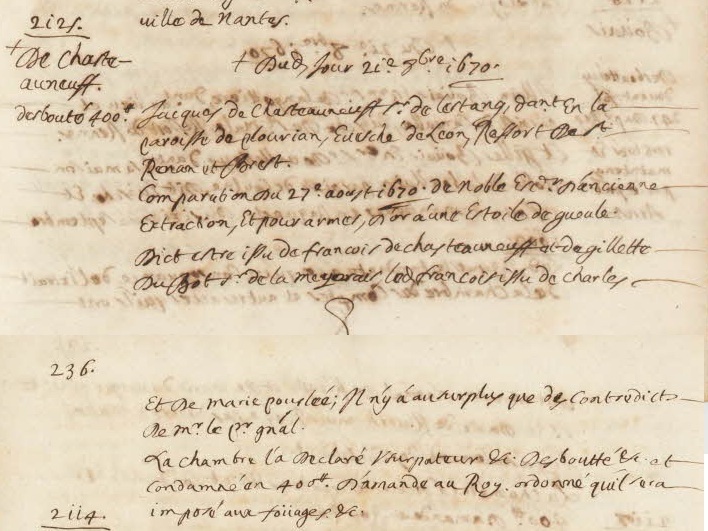 ville de Nantes.
2125.
+
De Chaste-
auneuff.
desbouté 400ᵗᵗ
+ Dud. Jour 21e 8bre 1670.
Jacques de Chasteauneuff sr. de Lestang, dant En la
paroisse de plourian, Evesché de Leon, Ressort De st
Renan et Brest.
Comparution Du 27e. aoust 1670. de Noble Escer. D'ancienne
Extraction, Et pour armes, D'or à une Estoile de gueule
Dict estre issu de francois de chasteauneuff et de gillette
Du sr. de la led. francois issu de charles
236.
Et De marie pouslée; Il n'y à au surplus que des Contredicts
De mr. le pr. gnãl.
La chambre l'a Declaré Usurpateur &c. Desboutté &c. et
Condamné en 400ᵗᵗ. D'amande au Roy. ordonné qu'il sera
imposé aux foüages &c.
2114.